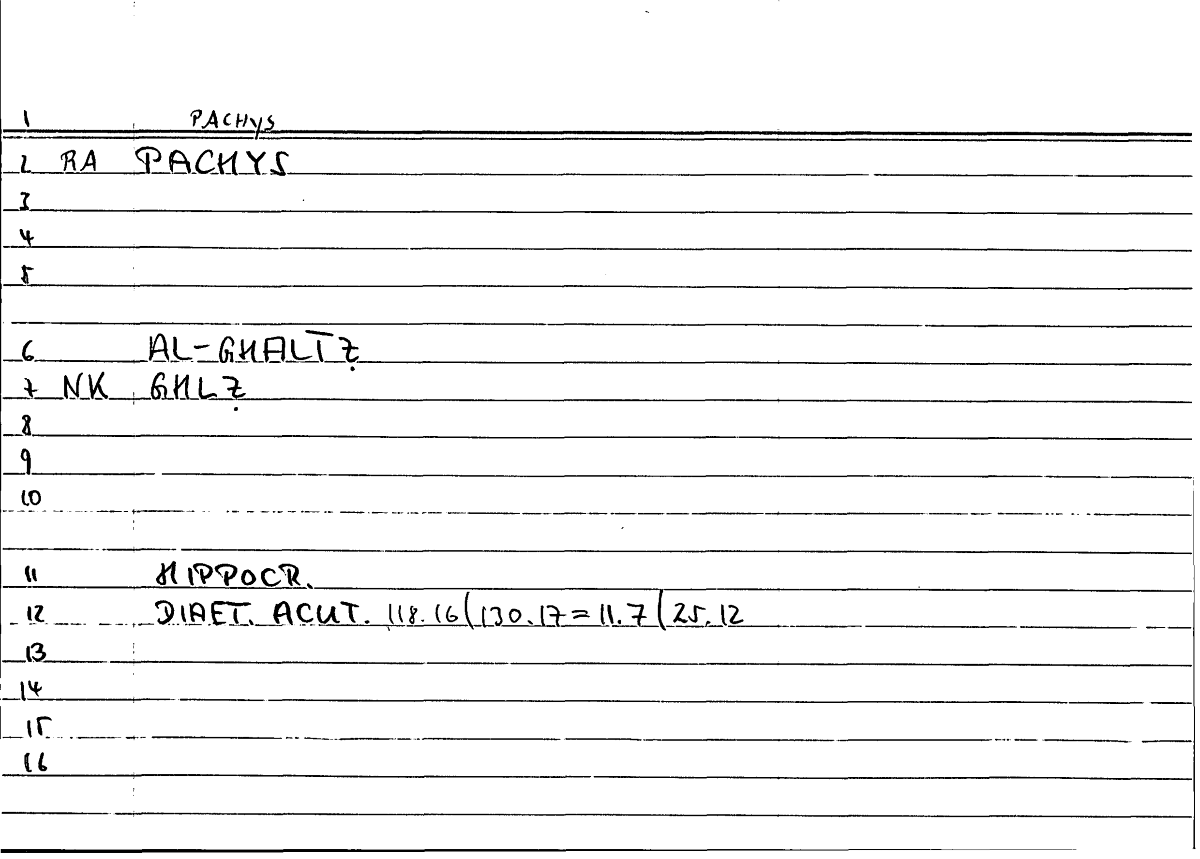 1 PACHYS
2 RA PACHYS
3
4
5
6 AL-GHALĪẒ
7 NK GHLẒ
8
9
10
11 HIPPOCR.
12 DIAET. ACUT. 118.16(130.17=11.7(25.12
13
14
15
16